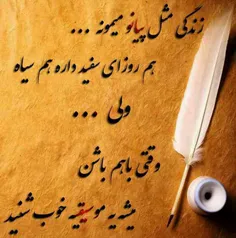 زندگی مثل پیانو میمونه ...
هم روزای سفید داره هم سیاه
ولی ...
وقتی باهم باشن
میشه یه موسیقیه خوب شنید